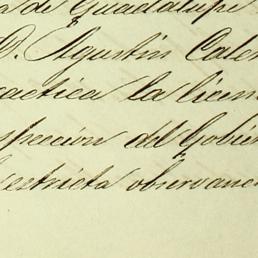 a de Guadalupe
D. Agustin Cale
actica la licen
speccion del Gobie
estricta observanc